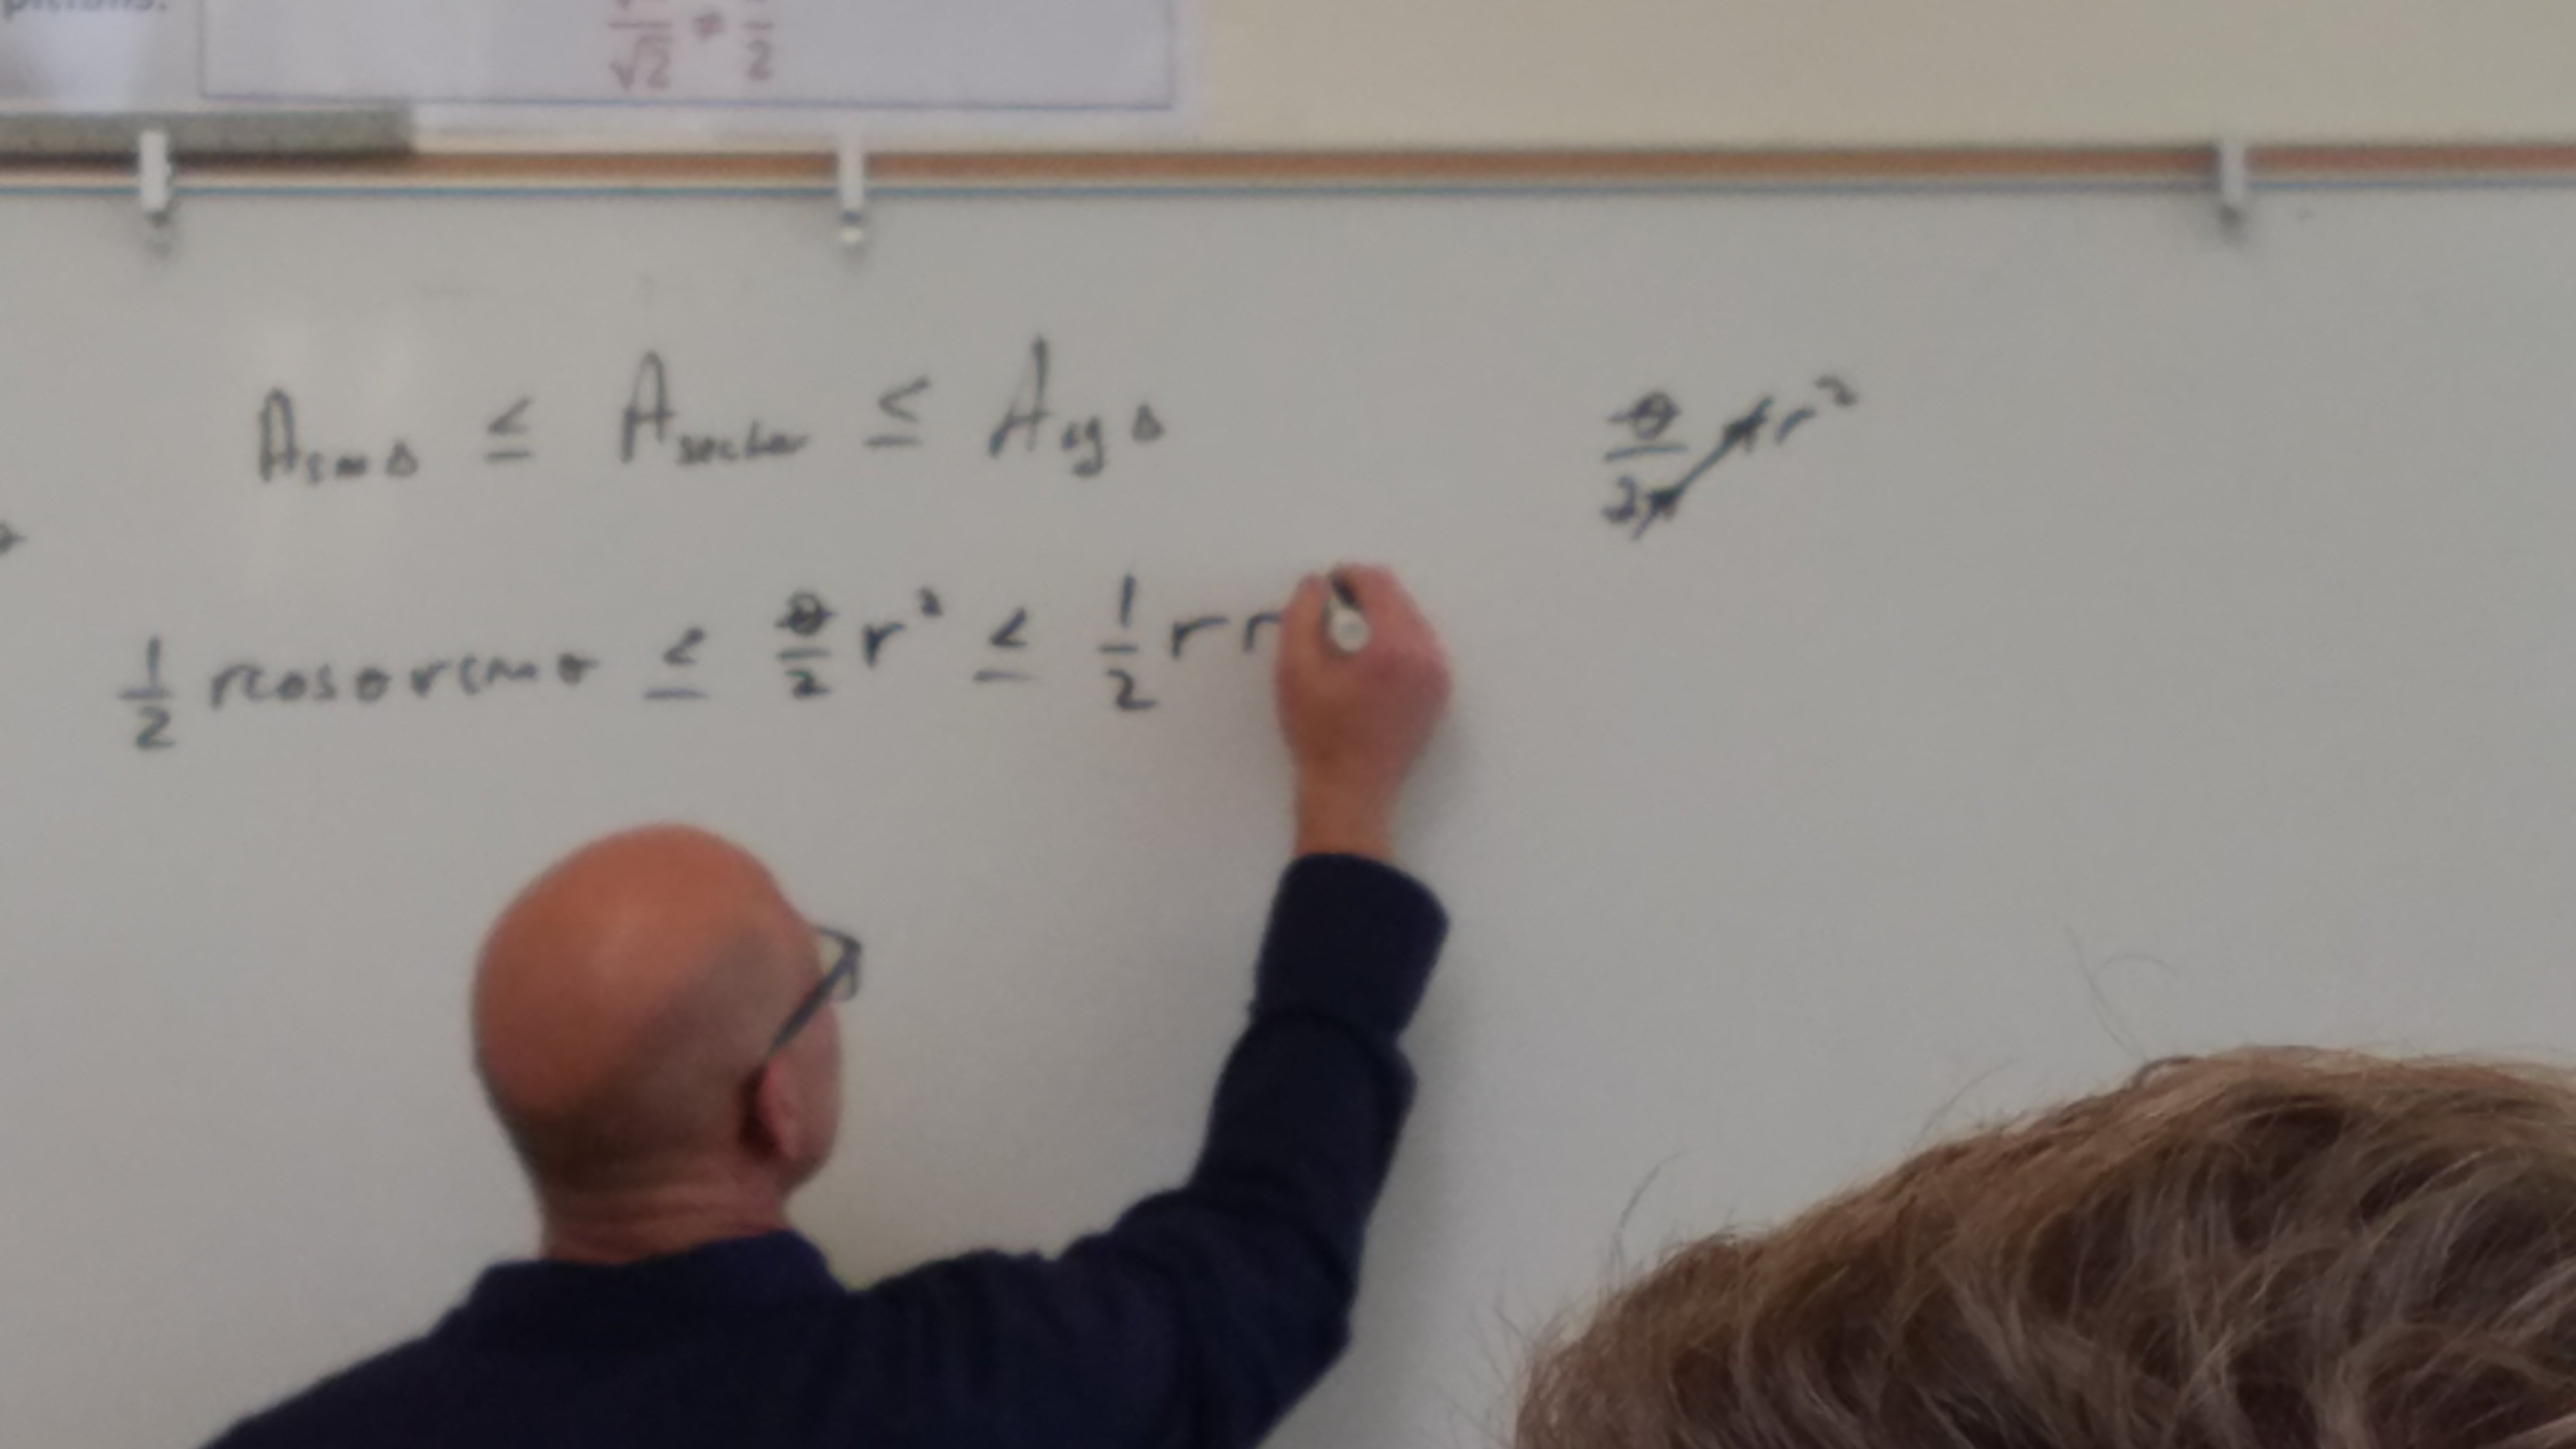 √2 ≠ 2
A sm Δ ≤ A sector ≤ A lg Δ
θ/2π πr²
1/2 rcosθ rsinθ ≤ θ/2 r² ≤ 1/2 r r